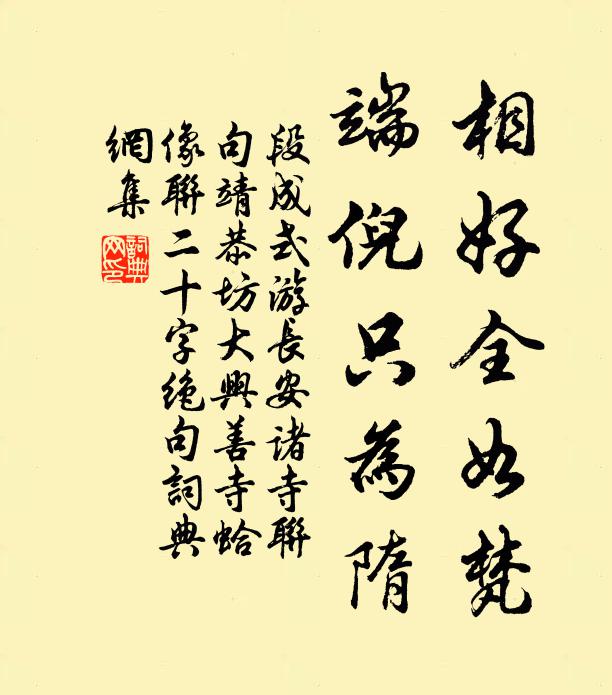 相好全如梵
端倪只為隋
段成式游長安諸寺聯
句靖恭坊大興善寺蛤
像聯二十字絶句詞典
網集
詞典網印